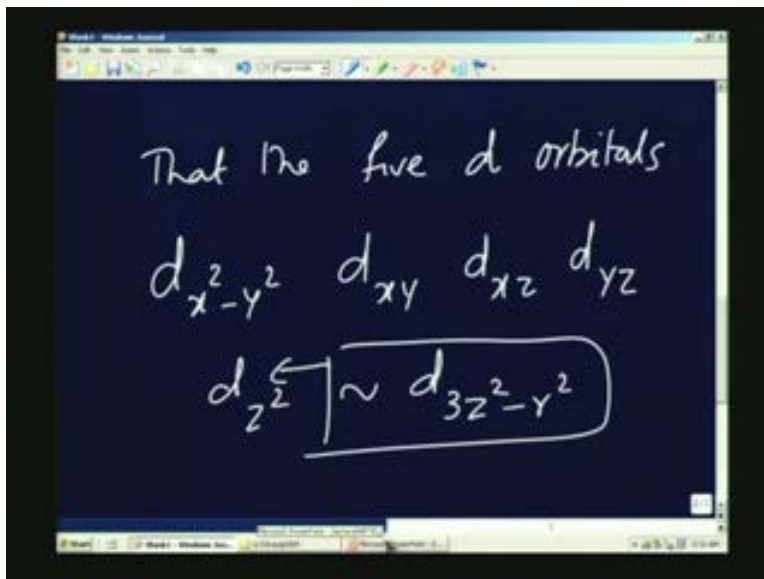 That the five d orbitals
d_{x²-y²} d_{xy} d_{xz} d_{yz}
d_{z²} ~ d_{3z²-r²}